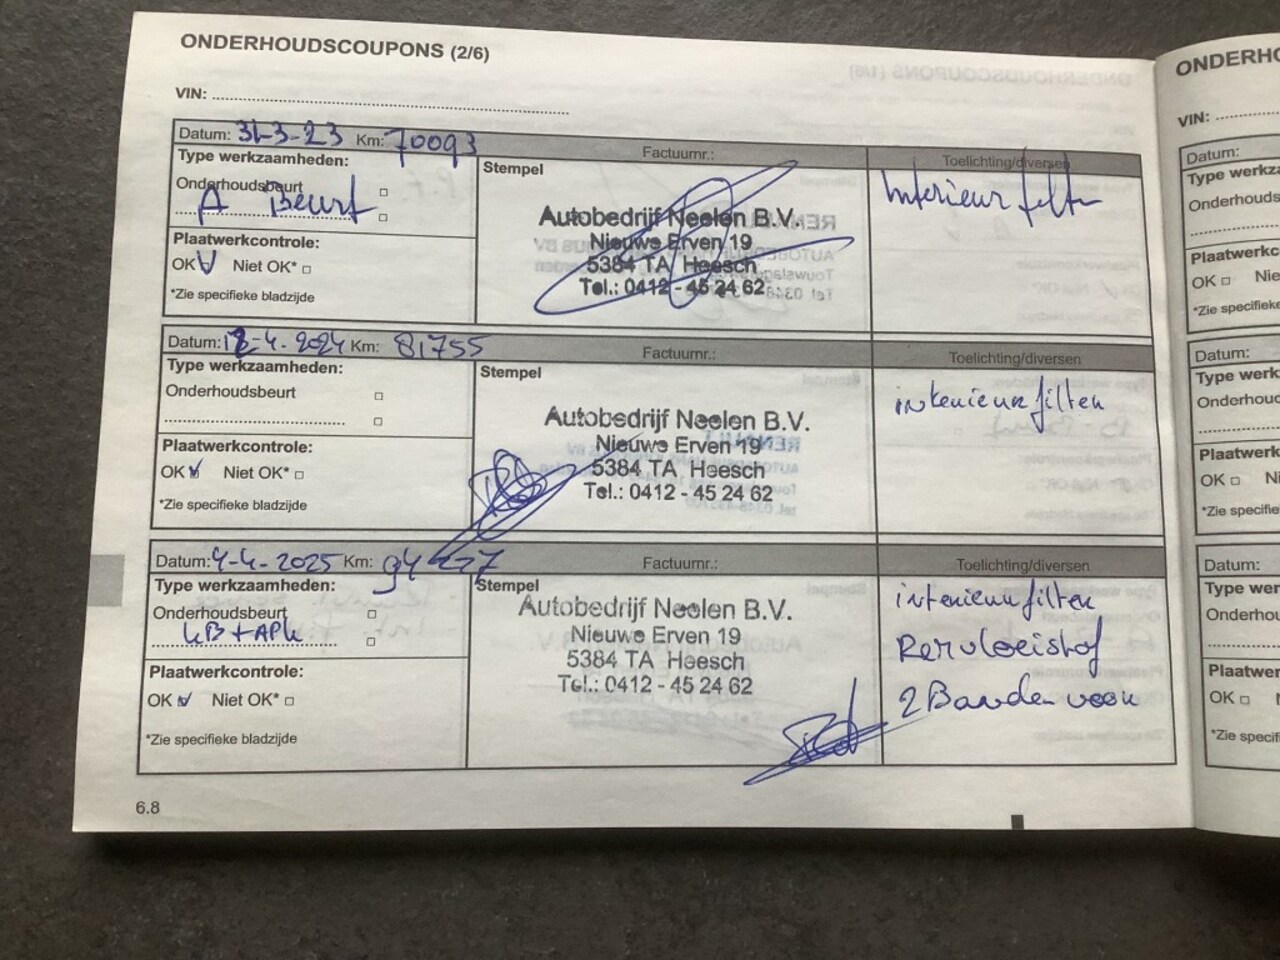 ONDERHOUDSCOUPONS (2/6)
VIN:
Datum: 31-3-23 Km: 70093
Factuurnr.:
Toelichting/diversen
Type werkzaamheden:
Onderhoudsbeurt
A Beurt
Plaatwerkcontrole:
OK Niet OK*
*Zie specifieke bladzijde
Stempel
Autobedrijf Neelen B.V.
Nieuwe Erven 19
5384 TA Heesch
Tel.: 0412 - 45 24 62
Interieur filter
Datum: 18-4-2024 Km: 81755
Factuurnr.:
Toelichting/diversen
Type werkzaamheden:
Onderhoudsbeurt
Plaatwerkcontrole:
OK Niet OK*
*Zie specifieke bladzijde
Stempel
Autobedrijf Neelen B.V.
Nieuwe Erven 19
5384 TA Heesch
Tel.: 0412 - 45 24 62
interieur filter
Datum: 4-4-2025 Km: 94
Factuurnr.:
Toelichting/diversen
Type werkzaamheden:
Onderhoudsbeurt
KB + APK
Plaatwerkcontrole:
OK Niet OK*
*Zie specifieke bladzijde
Stempel
Autobedrijf Neelen B.V.
Nieuwe Erven 19
5384 TA Heesch
Tel.: 0412 - 45 24 62
interieur filter
Remvloeistof
2 Banden voor
6.8
ONDERHO
VIN:
Datum:
Type werkza
Onderhoudsb
Plaatwerkc
OK Nie
*Zie specifieke
Datum:
Type werkz
Onderhouds
Plaatwerk
OK Ni
*Zie specifiek
Datum:
Type wer
Onderhou
Plaatwer
OK
*Zie specif